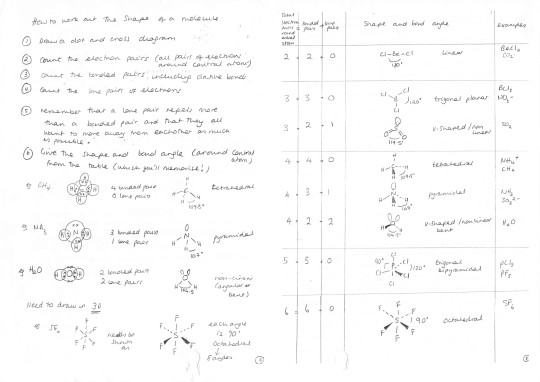 How to work out the shape of a molecule
① Draw a dot and cross diagram
② Count the electron pairs (all pairs of electrons around central atom)
③ Count the bonded pairs, including dative bonds
④ Count the lone pairs of electrons
⑤ Remember that a lone pair repels more
than a bonded pair and that they all
want to move away from eachother as much
as possible.
⑥ Give the shape and bond angle (around central atom)
from the table (which you'll memorise!)
eg CH4
4 bonded pairs
0 lone pairs
H
C
H
H
H
109.5°
tetrahedral
eg NH3
3 bonded pairs
1 lone pair
N
H
H
H
107°
pyramidal
eg H2O
2 bonded pairs
2 lone pairs
O
H
H
104.5
non-linear
(angular or
bent)
need to draw in 3D
eg SF6
F
F
F
S
F
F
F
needs to be
shown
as
F
F
F
S
F
F
F
each angle
is 90°
Octahedral
↓
8 angles
Total
electron
pairs
round
central
atom
bonded
pairs
lone
pairs
Shape and bond angle
Examples
2 = 2 + 0
Cl-Be-Cl
180°
linear
BeCl2
CO2
3 = 3 + 0
Cl
B
Cl
Cl
120°
trigonal planar
BCl3
NO3-
3 = 2 + 1
S
O
O
v-shaped/non
linear
SO2
4 = 4 + 0
H
C
H
H
H
109.5°
tetrahedral
NH4+
CH4
4 = 3 + 1
N
H
H
H
pyramidal
NH3
SO3 2-
4 = 2 + 2
O
H
H
104.5°
v-shaped/nonlinear
bent
H2O
5 = 5 + 0
90°
Cl
Cl
P
Cl
Cl
Cl
120°
trigonal
bipyramidal
PCl5
PF5
6 = 6 + 0
F
F
F
S
F
F
F
90°
octahedral
SF6